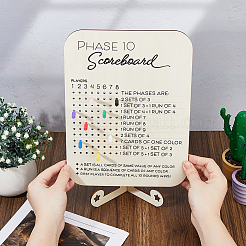 PHASE 10
Scoreboard
PLAYERS
1 2 3 4 5 6 7 8
THE PHASES ARE:
2 SETS OF 3
1 SET OF 3 + 1 RUN OF 4
1 SET OF 4 + 1 RUN OF 4
1 RUN OF 7
1 RUN OF 8
1 RUN OF 9
2 SETS OF 4
7 CARDS OF ONE COLOR
1 SET OF 5 + 1 SET OF 2
1 SET OF 5 + 1 SET OF 3
A SET IS ALL CARDS OF SAME VALUE OF ANY COLOR
A RUN IS A SEQUENCE OF CARDS OF ANY COLOR
FIRST PLAYER TO COMPLETE ALL 10 ROUNDS WINS!